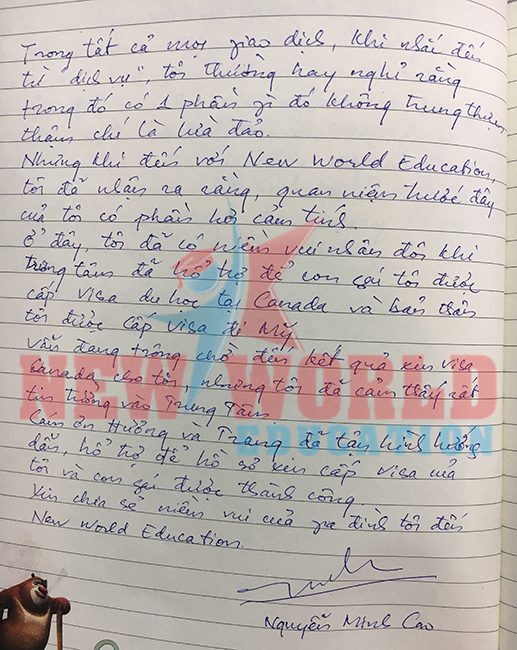 Trong tất cả mọi giao dịch, khi nhắc đến
từ "dịch vụ", tôi thường hay nghĩ rằng
trong đó có 1 phần gì đó không trung thực,
thậm chí là lừa đảo.
Nhưng khi đến với New World Education,
tôi đã nhận ra rằng, quan niệm trước đây
của tôi có phần hơi cảm tính.
Ở đây, tôi đã có niềm vui nhân đôi khi
trung tâm đã hổ trợ để con gái tôi được
cấp visa du học tại Canada và bản thân
tôi được cấp visa đi Mỹ.
Vẫn đang trông chờ đến kết quả xin visa
Canada cho tôi, nhưng tôi đã cảm thấy rất
tin tưởng vào Trung Tâm
NEW WORLD
EDUCATION
Cám ơn Hường và Trang đã tận tình hướng
dẫn, hổ trợ để hồ sơ xin cấp visa của
tôi và con gái được thành công
Xin chia sẻ niềm vui của gia đình tôi đến
New World Education.
Nguyễn Minh Cao